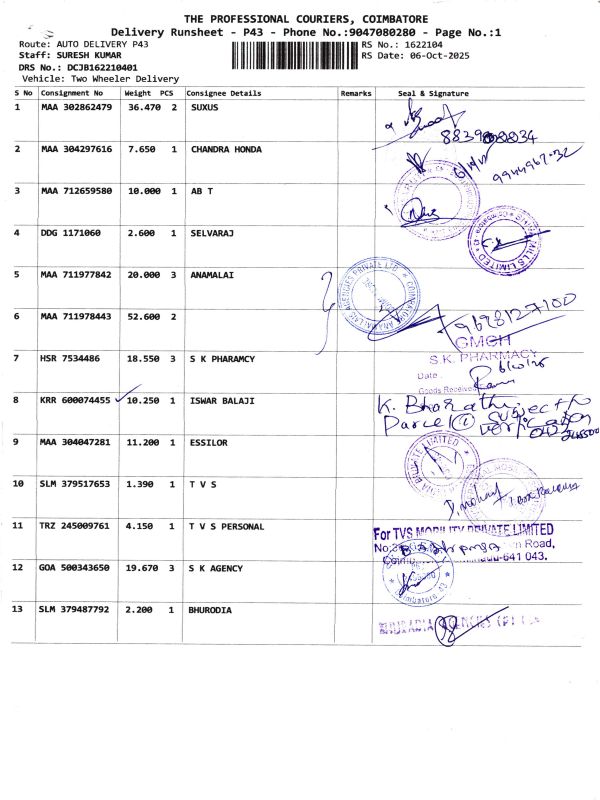 THE PROFESSIONAL COURIERS, COIMBATORE
Delivery Runsheet - P43 - Phone No.:9047080280 - Page No.:1
Route: AUTO DELIVERY P43 RS No.: 1622104
Staff: SURESH KUMAR RS Date: 06-Oct-2025
DRS No.: DCJB162210401
Vehicle: Two Wheeler Delivery
S No Consignment No Weight PCS Consignee Details Remarks Seal & Signature
1 MAA 302862479 36.470 2 SUXUS
2 MAA 304297616 7.650 1 CHANDRA HONDA
3 MAA 712659580 10.000 1 AB T
4 DDG 1171060 2.600 1 SELVARAJ
5 MAA 711977842 20.000 3 ANAMALAI
6 MAA 711978443 52.600 2 9698127100
GMCH
7 HSR 7534486 18.550 3 S K PHARAMCY S.K. PHARMACY
Date :
Goods Received
8 KRR 600074455 10.250 1 ISWAR BALAJI K. Bharathi
Parcel ① subject to
verification
9 MAA 304047281 11.200 1 ESSILOR
10 SLM 379517653 1.390 1 T V S
11 TRZ 245009761 4.150 1 T V S PERSONAL For TVS MOBILITY PRIVATE LIMITED
Road,
641 043.
12 GOA 500343650 19.670 3 S K AGENCY
13 SLM 379487792 2.200 1 BHURODIA